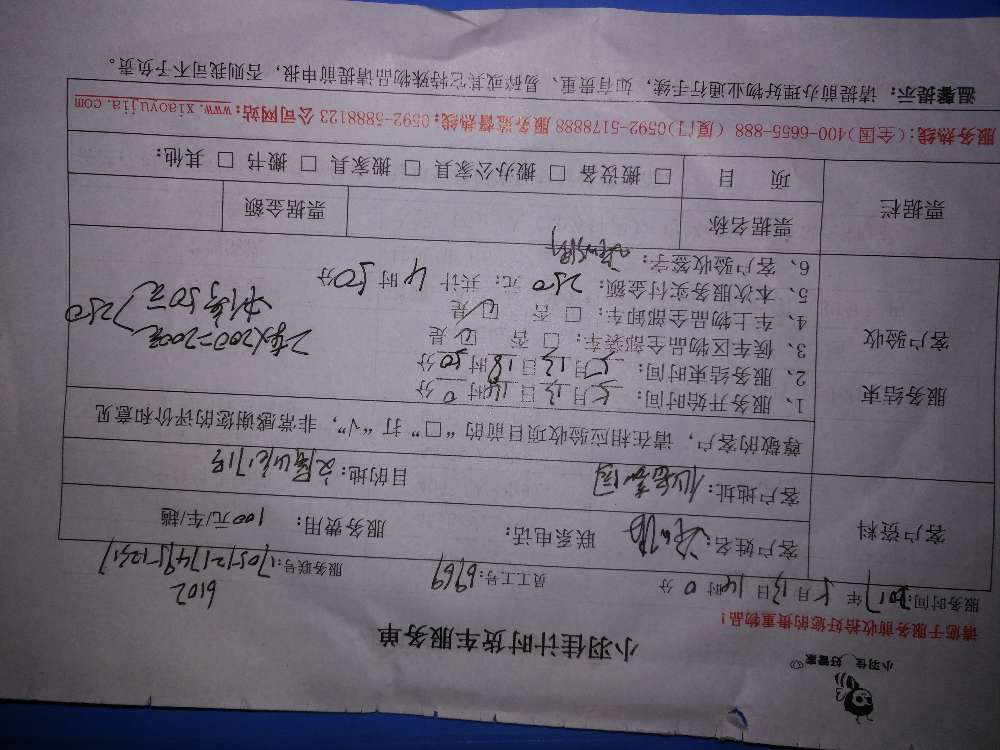 小羽佳 好管家
小羽佳计时货车服务单
请您于服务前收拾好您的贵重物品！
6102
服务时间：2017年5月13日14时0分 员工工号：6969 服务联号：
客户资料
客户姓名： 联系电话： 服务费用：100元/车/趟
客户地址： 目的地：
尊敬的客户，请在相应验收项目前的“□”打“√”，非常感谢您的评价和意见
服务结束
客户验收
1、服务开始时间：5月13日14时0分
2、服务结束时间：5月13日18时50分
3、候车区物品全部装车：□ 否 ☑ 是
4、车上物品全部卸车：□ 否 ☑ 是
5、本次服务实付金额：250元；共计4时50分
6、客户验收签字：
2车X200=200元
50元
250
票据栏
票据名称 票据金额
项 目 □ 搬设备 □ 搬办公家具 □ 搬家具 □ 搬书 □ 其他：
服务热线：(全国)400-6655-888 (厦门)0592-5178888 服务监督热线：0592-5888123 公司网站：www.xiaoyujia.com
温馨提示：请提前办理好物业通行手续，如有贵重、易碎或其它特殊物品请提前申报，否则我司不予负责。